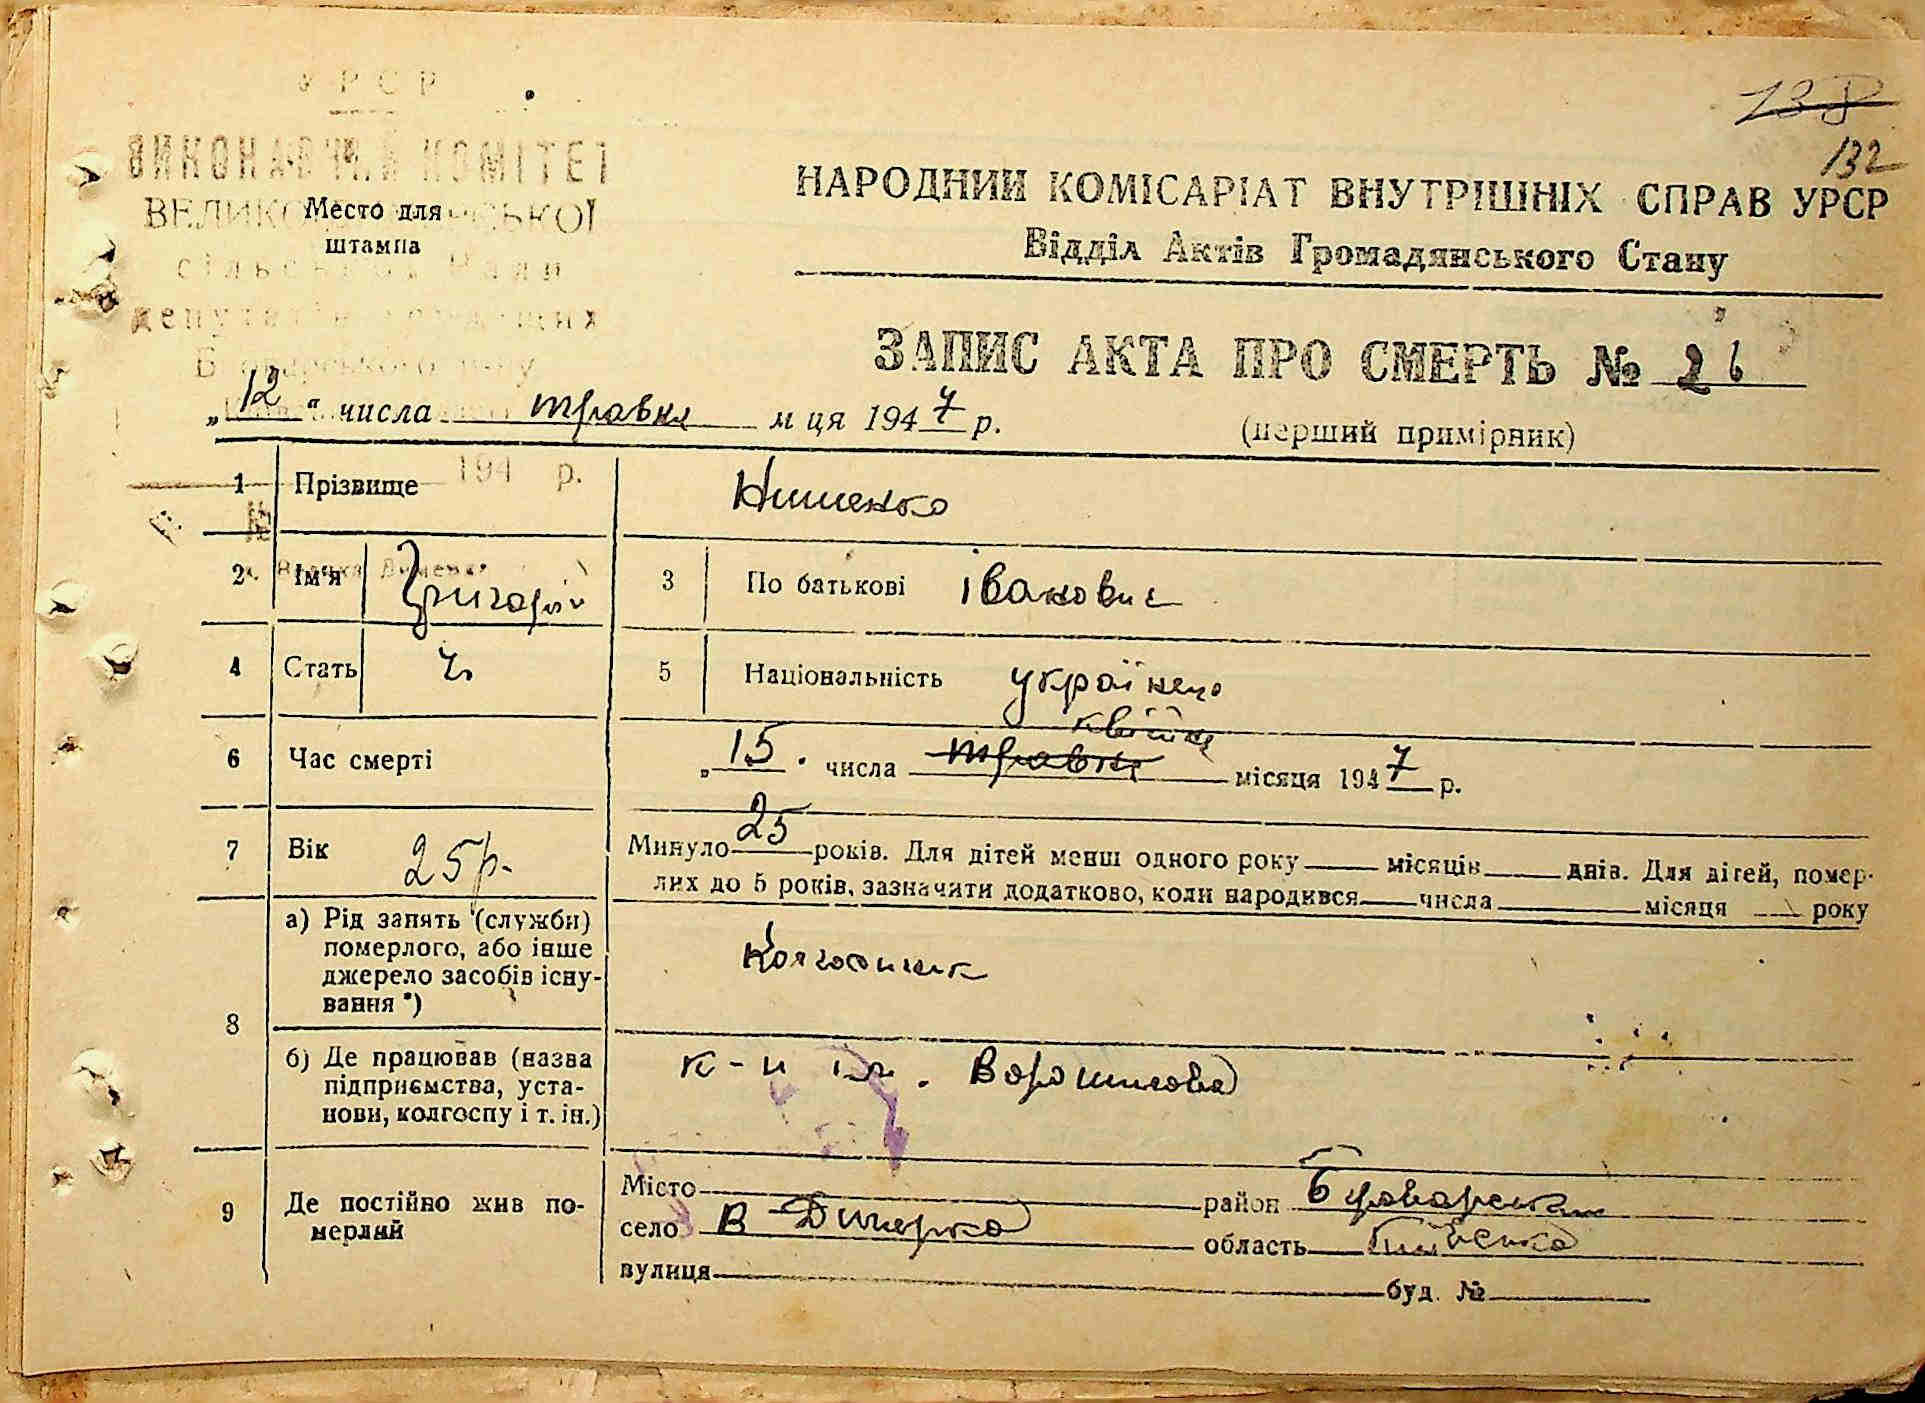 УРСР
ВИКОНАВЧИЙ КОМІТЕТ
ВЕЛИКО
СЬКОЇ
Место для
штампа
депутатів трудящих
138
132
НАРОДНИЙ КОМІСАРІАТ ВНУТРІШНІХ СПРАВ УРСР
Відділ Актів Громадянського Стану
ЗАПИС АКТА ПРО СМЕРТЬ № 26
„12“ числа травня м ця 1947 р.
(перший примірник)
194 р.
№
1 Прізвище
2 Ім'я Григорій 3 По батькові Іванович
4 Стать ч. 5 Національність українець
квітня
6 Час смерті „15“ числа травня місяця 1947 р.
7 Вік 25 р. Минуло 25 років. Для дітей менш одного року місяців днів. Для дітей, помер-
лих до 5 років, зазначити додатково, коли народився числа місяця року
8 а) Рід занять (служби)
померлого, або інше
джерело засобів існу-
вання *)
Колгоспник
б) Де працював (назва
підприємства, уста-
нови, колгоспу і т. ін.)
к-п ім. Ворошилова
9 Де постійно жив по-
мерлий
Місто район Броварський
село В Димерка область Київська
вулиця буд. №